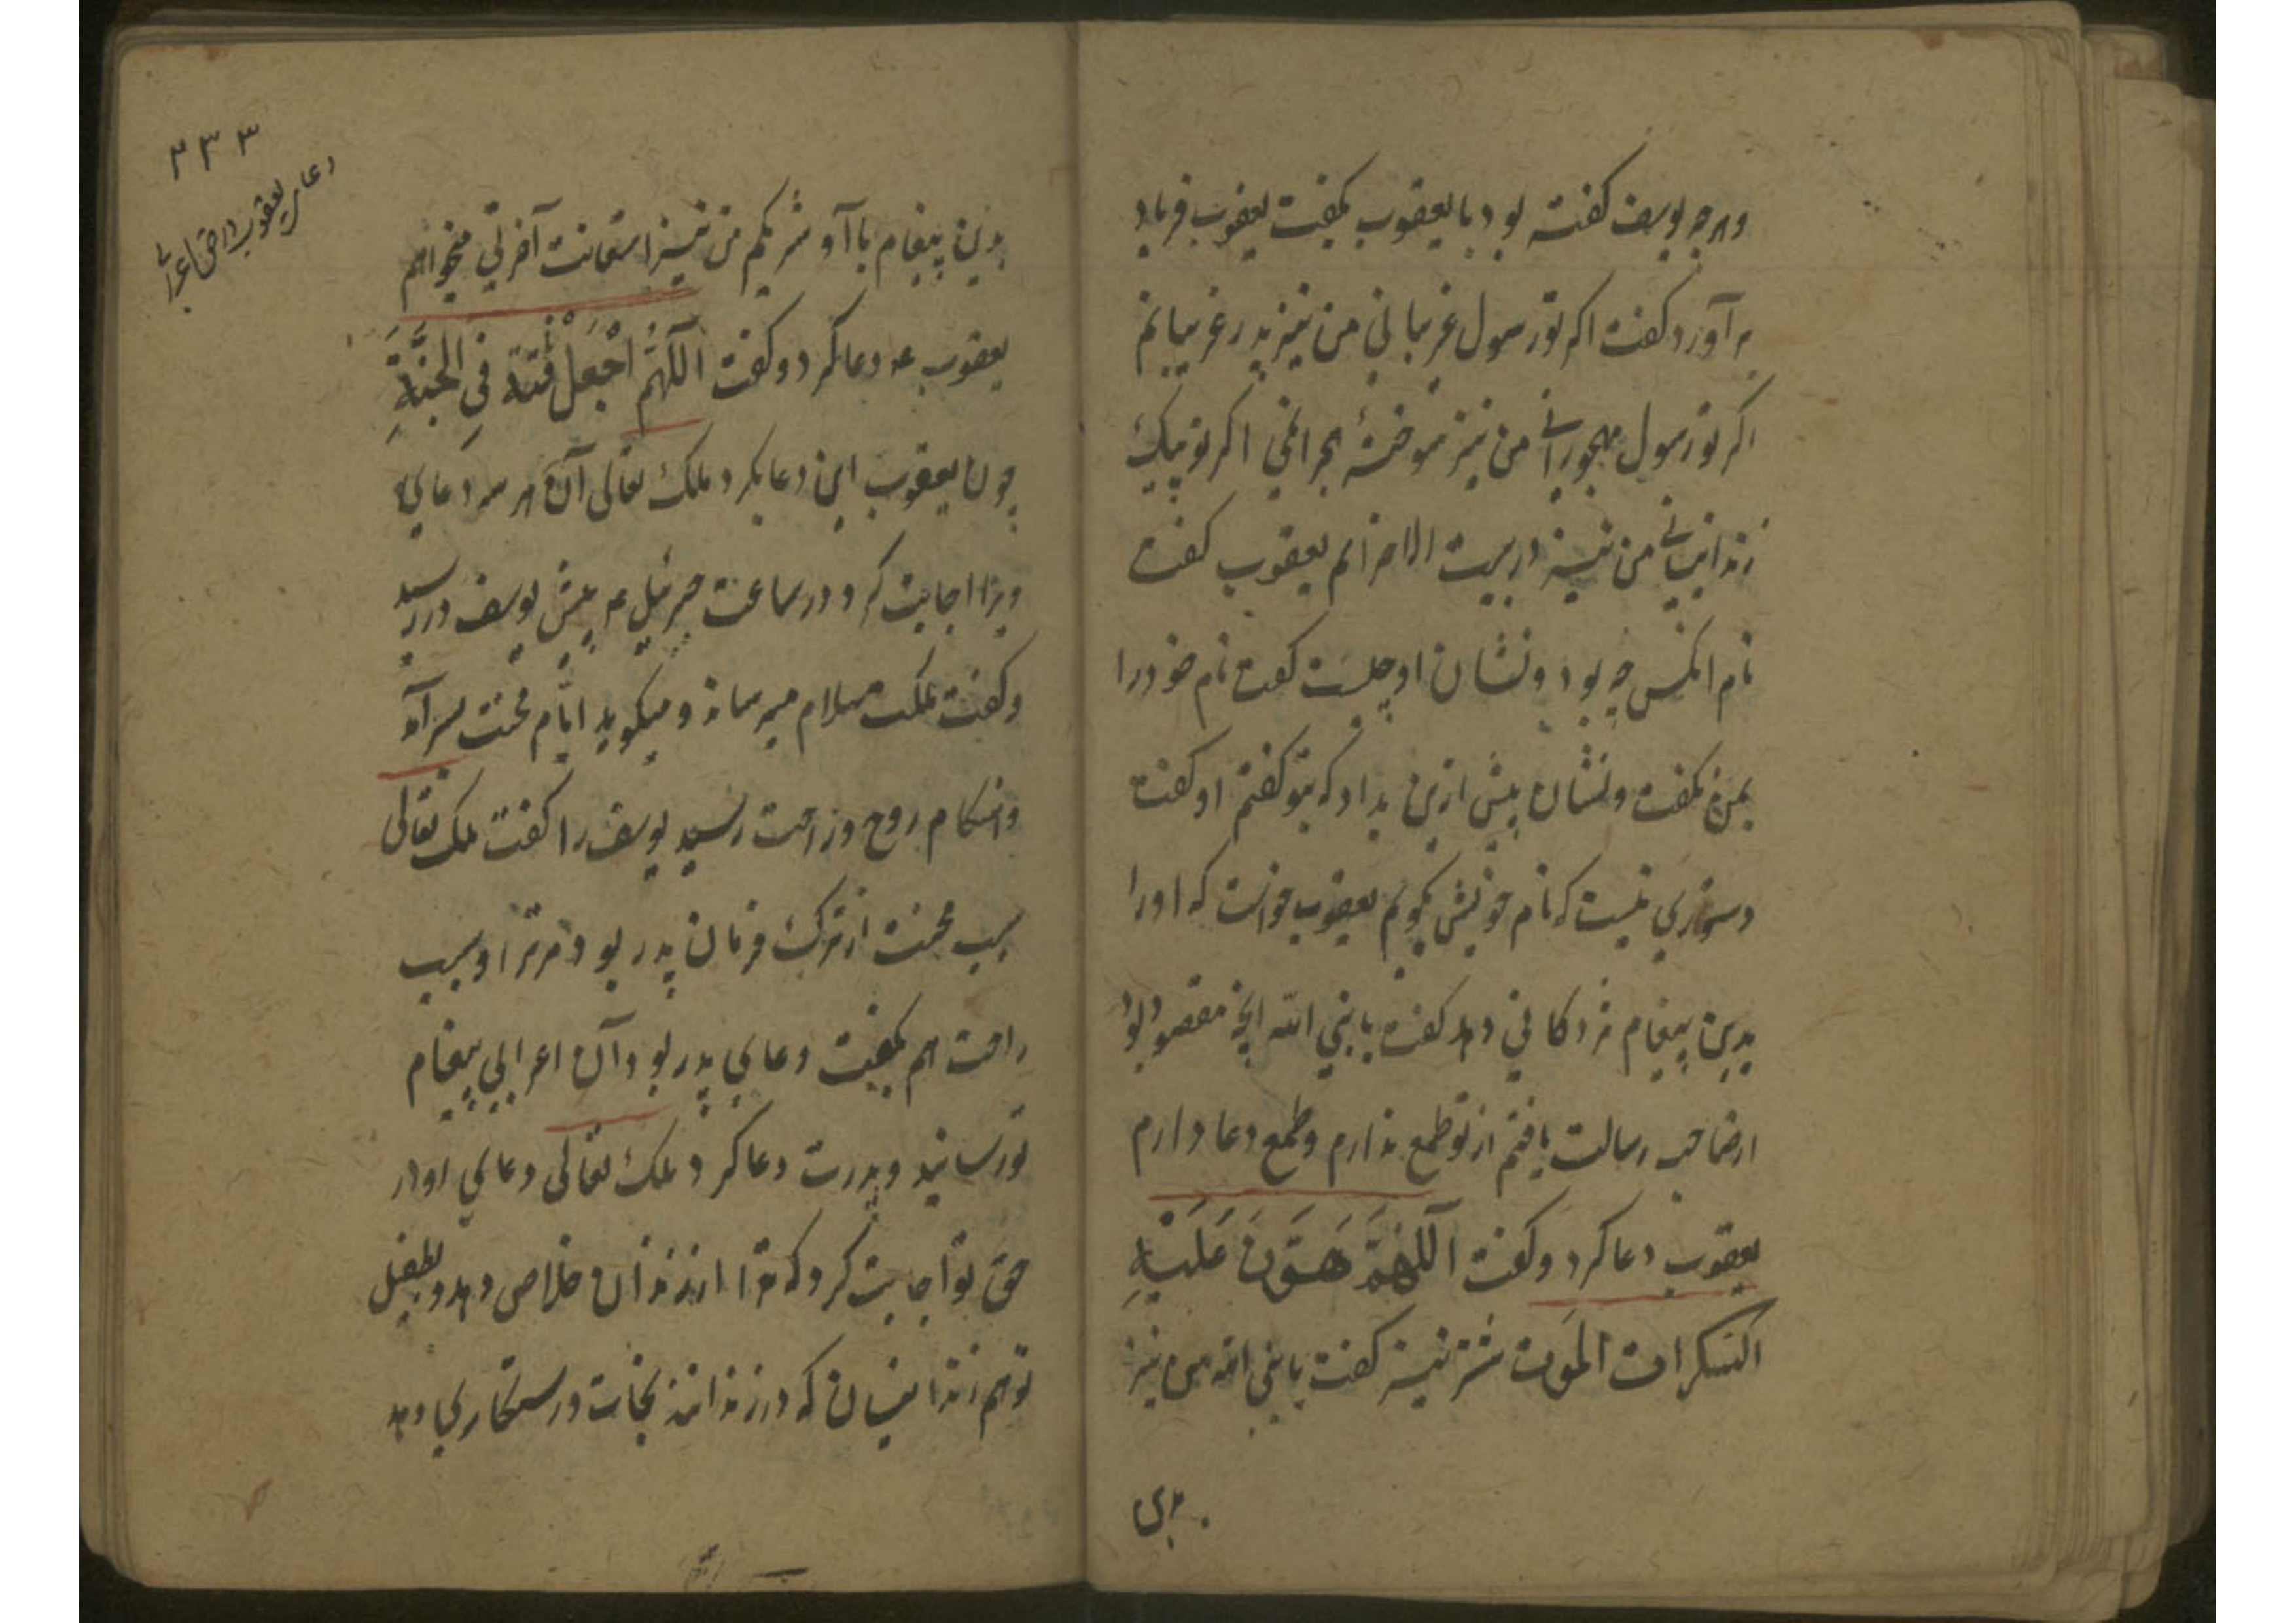 وهرچه یوسف کفته بود با یعقوب بکفت یعقوب فریاد
برآورد کفت اکر تو رسول غریبانی من نیز پدر غریبانم
اکر تو رسول مهجورانی من نیز سوختۀ هجرانم اکر تو پیک
زندانیانی من نیز در بیت الاحزانم یعقوب کفت
نام انکس چه بود و نشان او چیست کفت نام خود را
بمن نکفت و نشان پیش ازین نداد که بتو کفتم او کفت
دستوری نیست که نام خویش بکویم یعقوب خواست که او را
بدین پیغام مژدکانی دهد کفت یا نبی الله انچه مقصود بود
از صاحب رسالت یافتم از تو طمع ندارم و طمع دعا دارم
یعقوب دعا کرد و کفت اللهم هون علیه
السکرات الموت شتر نیز کفت یا نبی الله من نیز
بدین
۲۳۳
دعاء یعقوب در حق اعرابی
بدین پیغام با او شریکم من نیز استعانت آخرتی میخواهم
یعقوب عه دعا کرد و کفت اللهم اجعل فی الجنة
چون یعقوب این دعا بکرد ملک تعالی آن هر سه دعای
ویرا اجابت کرد در ساعت جبرئیل عه پیش یوسف در رسید
و کفت ملکت سلام میرساند و میکوید ایام محنت بسر آمد
و هنکام روح و راحت رسید یوسف را کفت ملک تعالی
سبب محنت از ترک فرمان پدر بود مر ترا و سبب
راحت هم بکفت دعای پدر بود آن اعرابی پیغام
تو رسانید و پدرت دعا کرد ملک تعالی دعای او در
حق تو اجابت کرد که ترا از زندان خلاص دهد و بطفیل
تو هم زندانیان که در زندانند نجات و رستکاری دهد